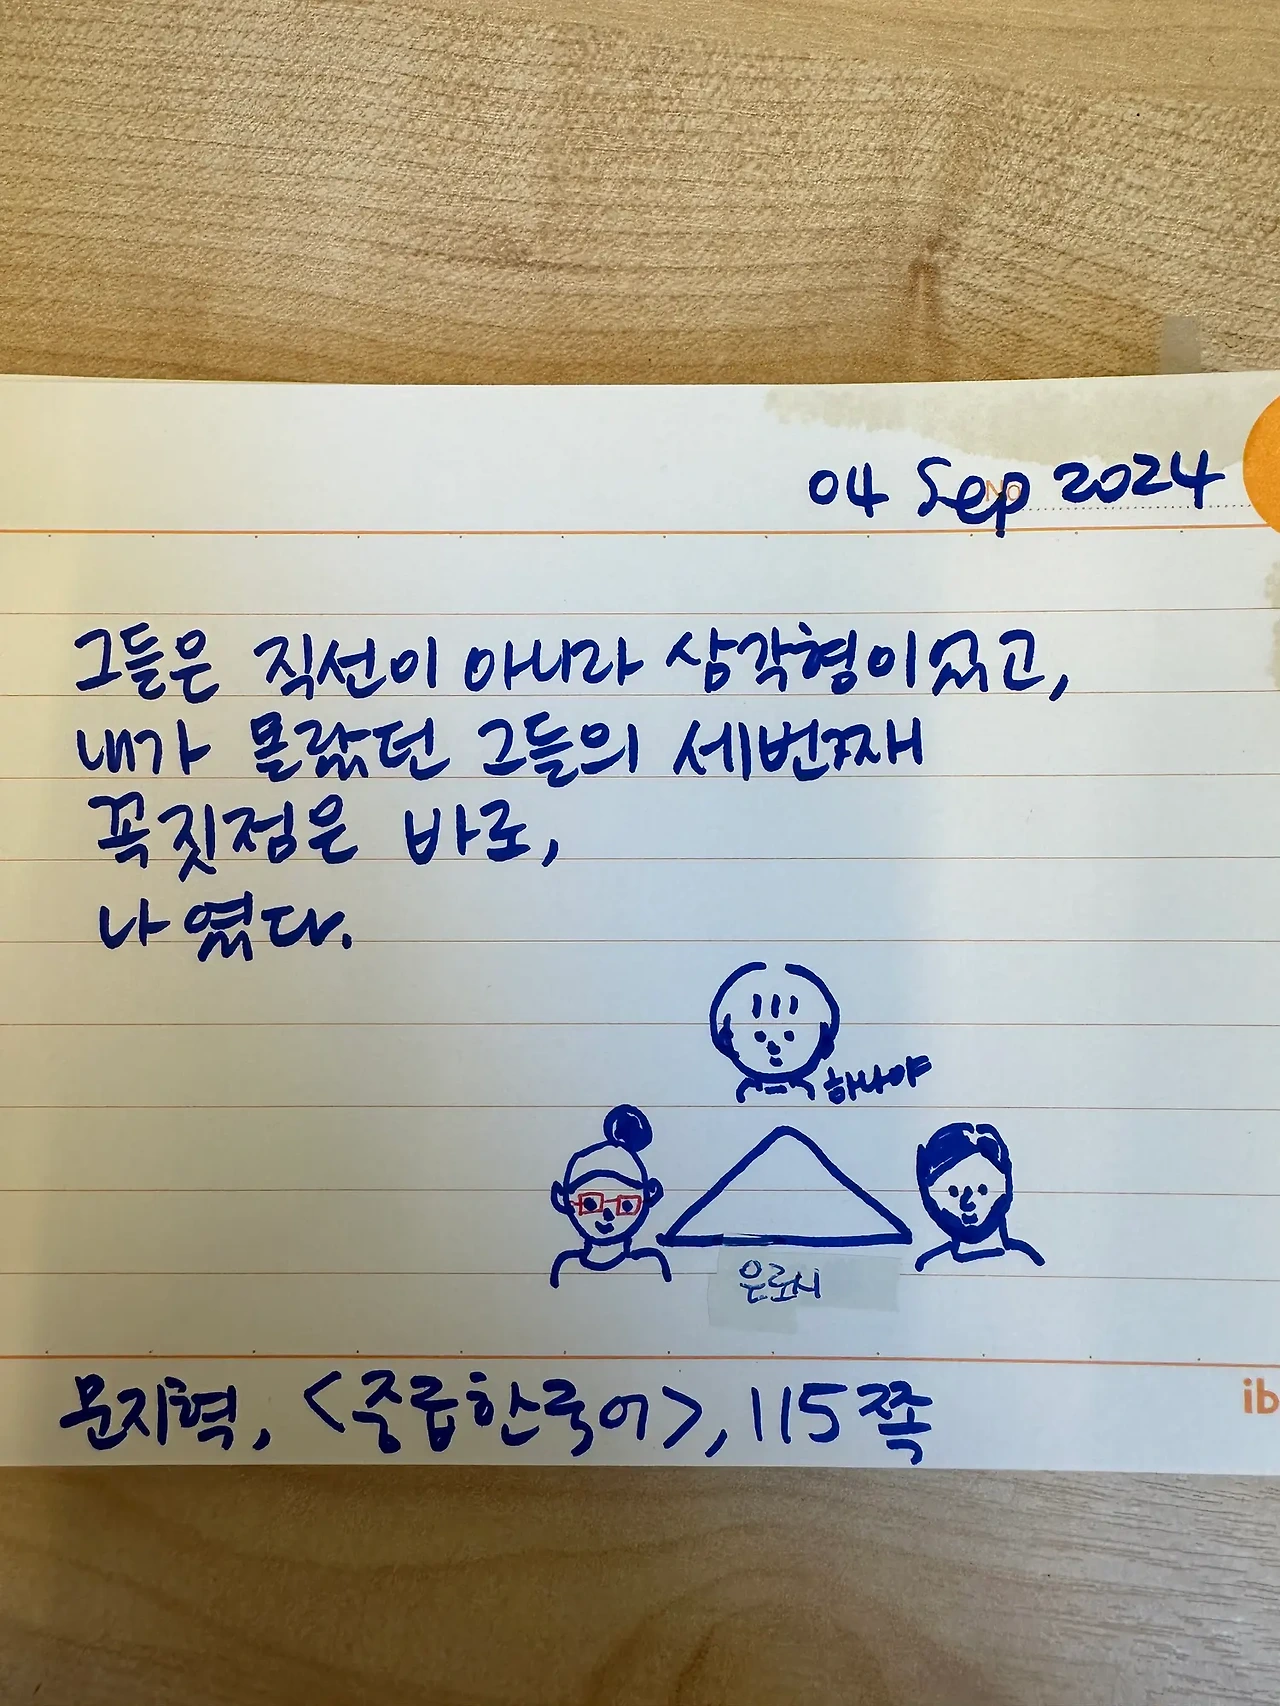 04 Sep 2024
No
그들은 직선이 아니라 삼각형이었고,
내가 몰랐던 그들의 세번째
꼭짓점은 바로,
나였다.
하나야
은로시
문지혁, <중급한국어>, 115쪽
ib